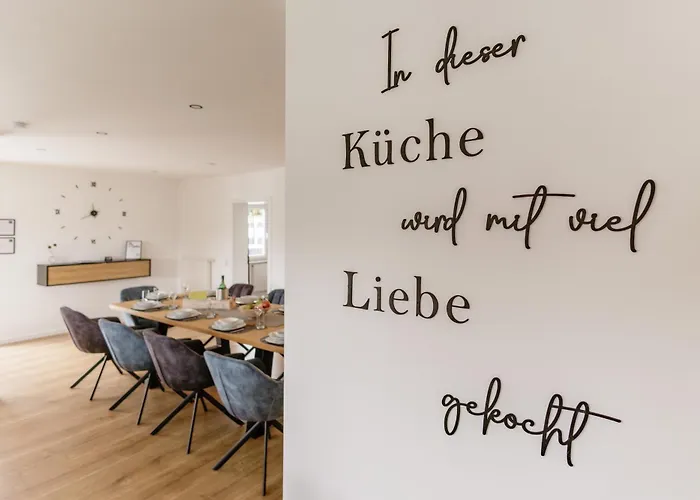 In dieser
Küche
wird mit viel
Liebe
gekocht